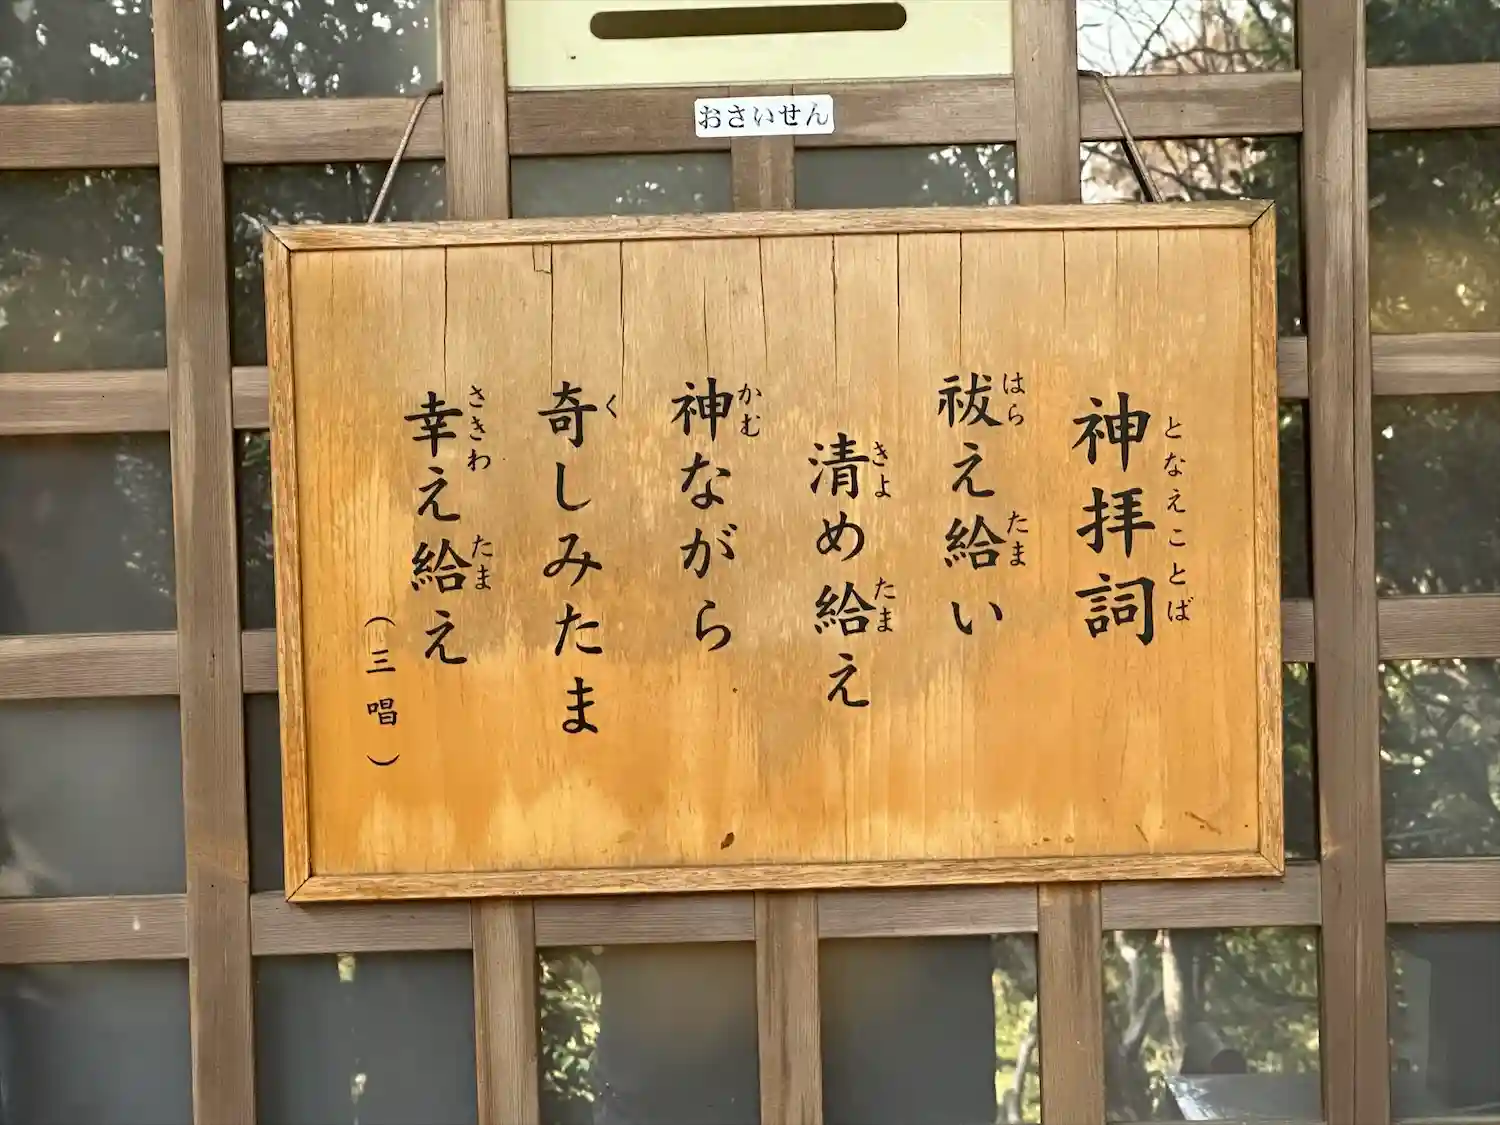 おさいせん
神拝詞
となえことば
祓え給い
はら たま
清め給え
きよ たま
神ながら
かむ
奇しみたま
く
幸え給え
さきわ たま
（三唱）